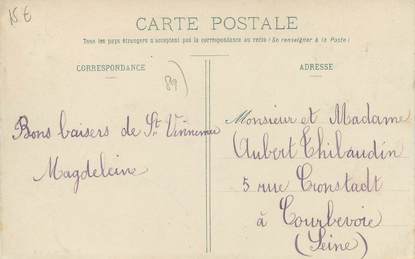 15€
CARTE POSTALE
Tous les pays étrangers n'acceptent pas la correspondance au recto (Se renseigner à la Poste)
CORRESPONDANCE
ADRESSE
89)
Bons baisers de St Vinnemer
Magdeleine
Monsieur et Madame
Aubert Thibaudin
5 rue Cronstadt
à Courbevoie
(Seine)